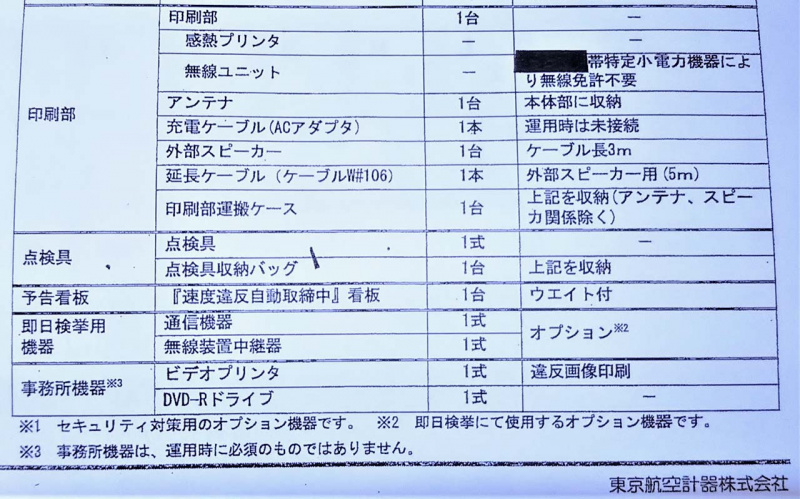 印刷部 1台 －
感熱プリンタ － －
無線ユニット － 帯特定小電力機器によ
り無線免許不要
印刷部
アンテナ 1台 本体部に収納
充電ケーブル(ACアダプタ) 1本 運用時は未接続
外部スピーカー 1台 ケーブル長3m
延長ケーブル（ケーブルW#106) 1本 外部スピーカー用(5m)
印刷部運搬ケース 1台 上記を収納(アンテナ、スピー
カ関係除く)
点検具 点検具 1式 －
点検具収納バッグ 1台 上記を収納
予告看板 『速度違反自動取締中』看板 1台 ウエイト付
即日検挙用
機器
通信機器 1式 オプション※2
無線装置中継器 1式
事務所機器※3 ビデオプリンタ 1式 違反画像印刷
DVD-Rドライブ 1式 －
※1 セキュリティ対策用のオプション機器です。 ※2 即日検挙にて使用するオプション機器です。
※3 事務所機器は、運用時に必須のものではありません。
東京航空計器株式会社